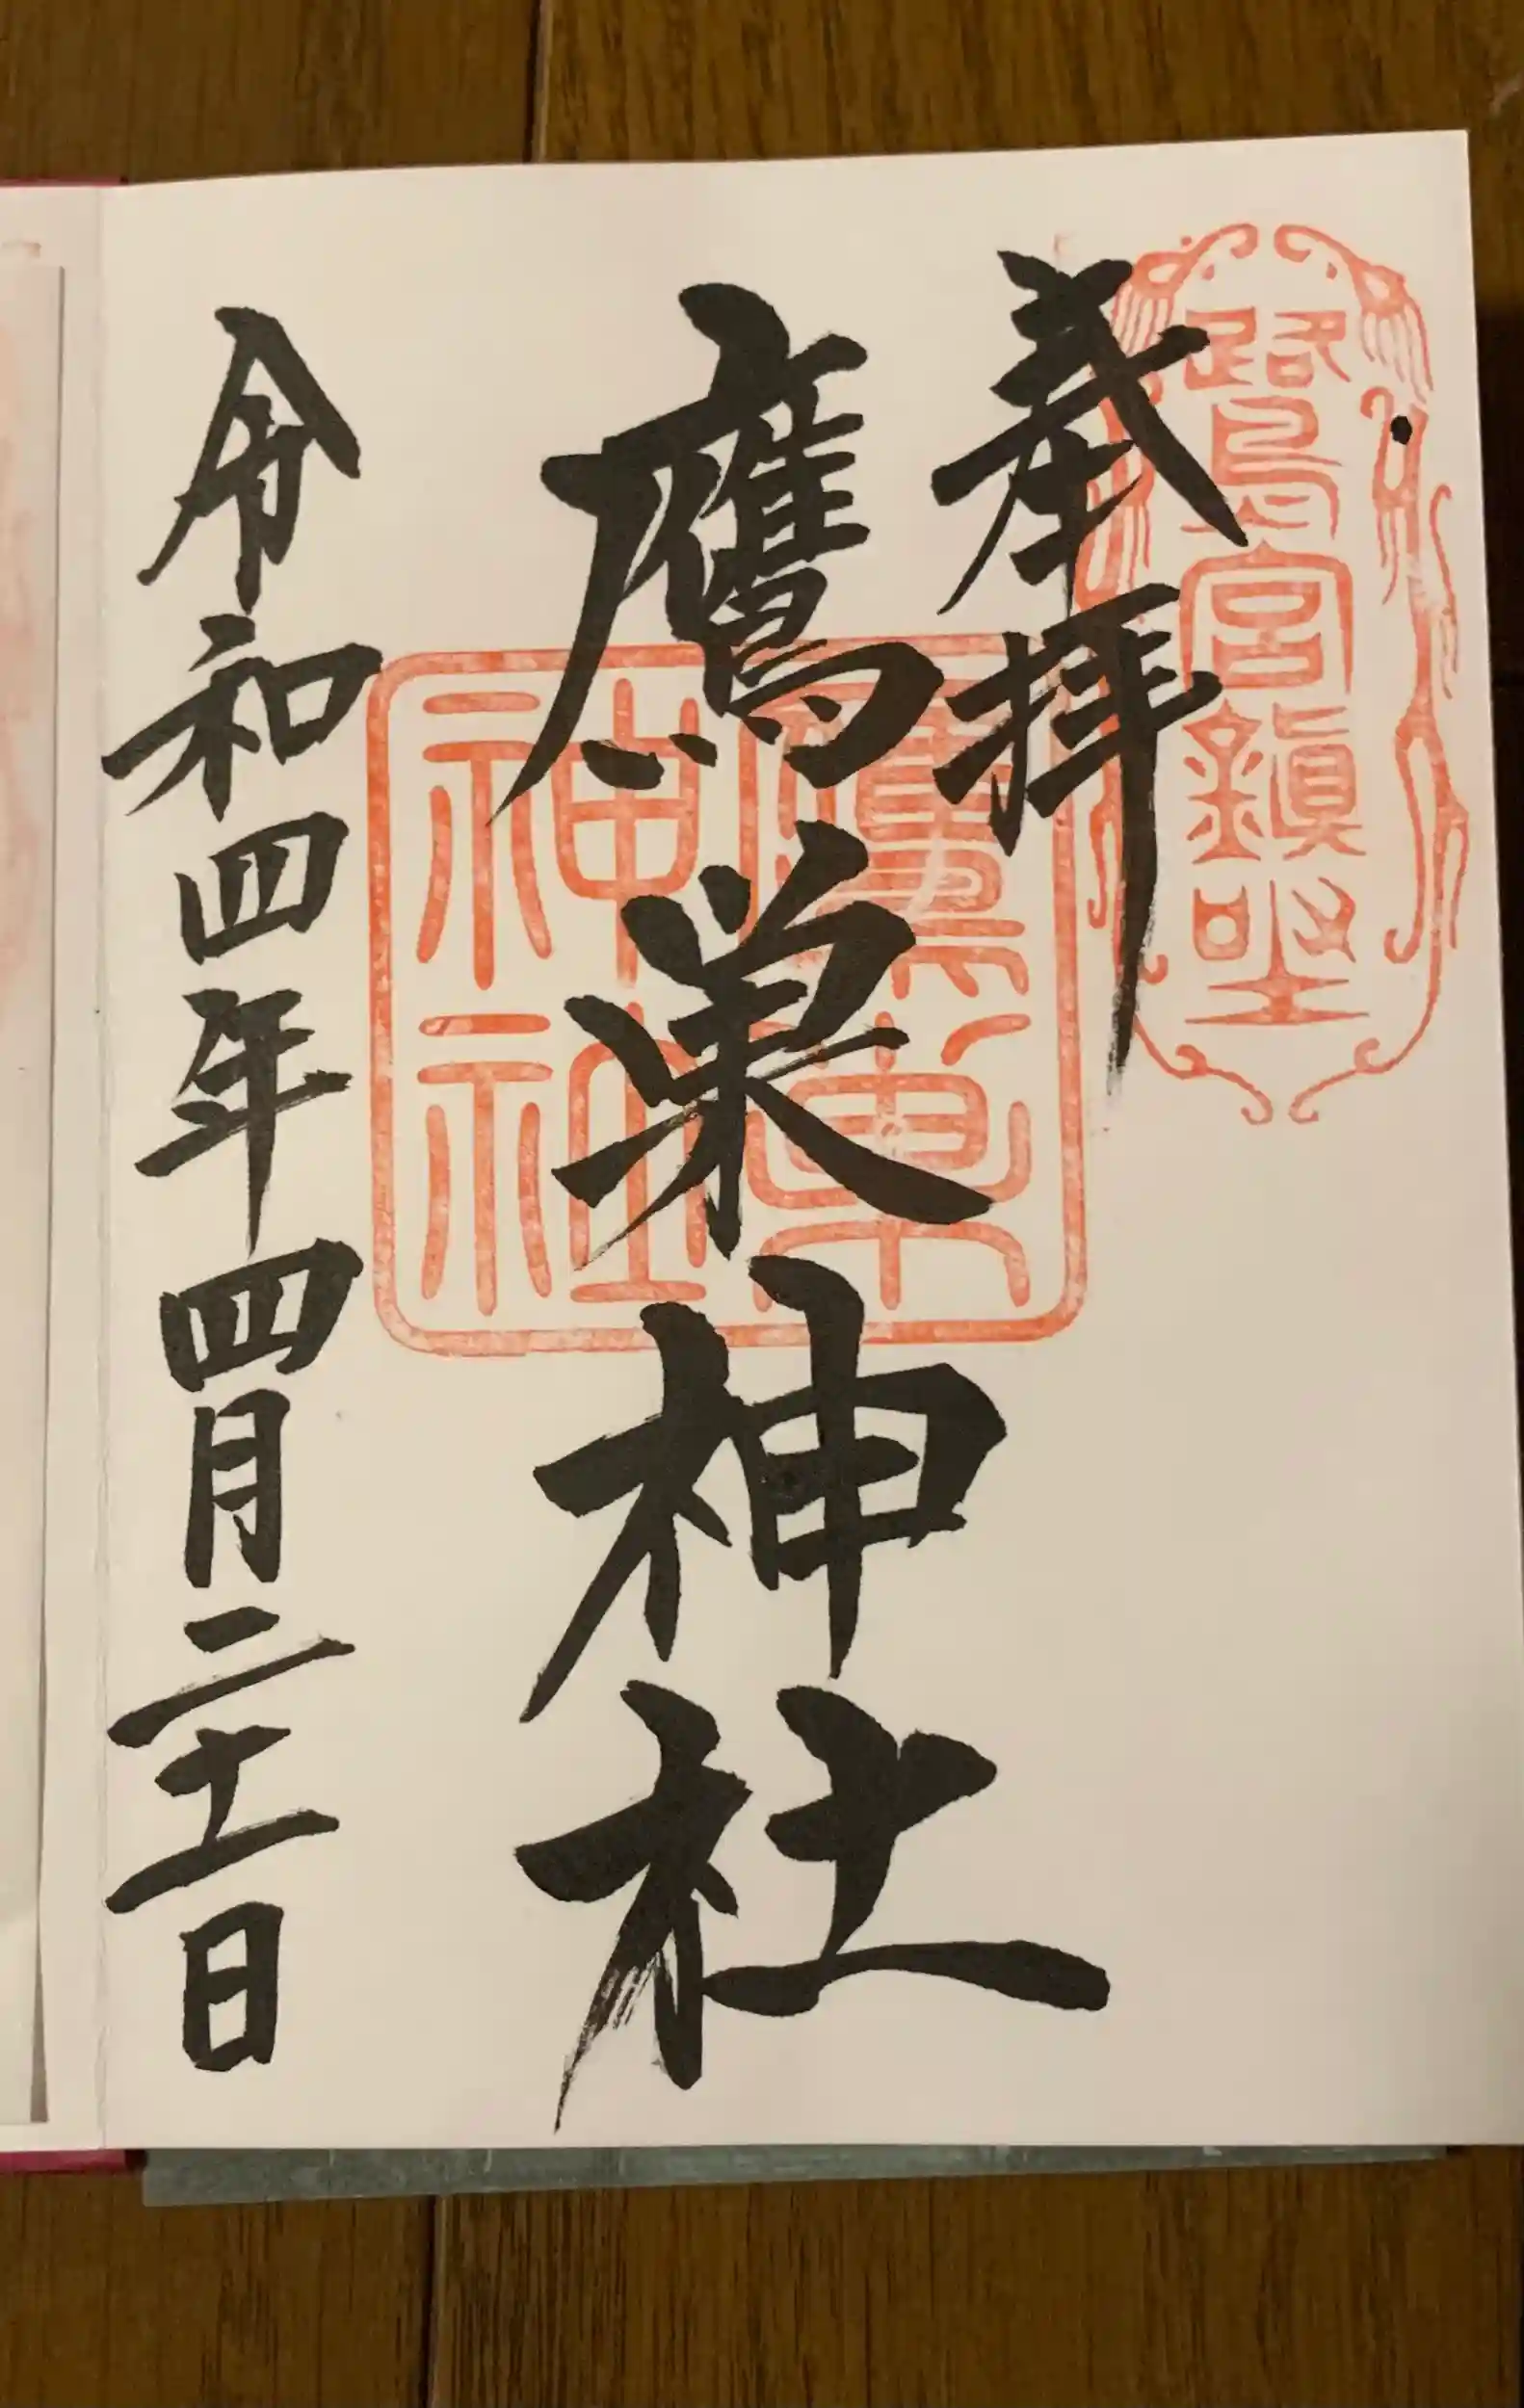 鷺宮鎮座
奉拝
鷹巣神社
鷹巣
神社
令和四年四月二十二日